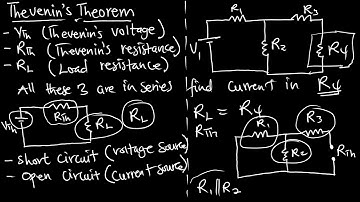 Thevenin's Theorem
- VTh (Thevenin's voltage)
- RTh (Thevenin's resistance)
- RL (Load resistance)
All these 3 are in series
VTh
RTh
RL
RL
- short circuit (voltage source)
- open circuit (current source)
R1
R3
V1
R2
R4
find current in R4
RL = R4
RTh
R1
R3
R2
RTh
R1 || R2